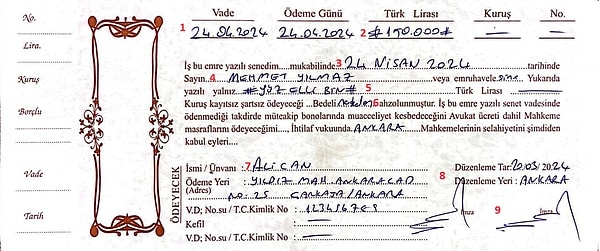 No.
Lira.
Kuruş
Borçlu
Vade
Tarih
Vade Ödeme Günü Türk Lirası Kuruş No.
1 24.04.2024 24.04.2024 2 #150.000# — —
İş bu emre yazılı senedim.....mukabilinde 3 24 NİSAN 2024 tarihinde
Sayın 4 MEHMET YILMAZ veya emruhavele sine. Yukarıda
yazılı yalnız #YÜZ ELLİ BİN# 5 Türk Lirası — Kuruş
Kuruş kayıtsız şartsız ödeyeceği ... Bedeli nakden 6 ahzolunmuştur. İş bu emre yazılı senet vadesinde
ödenmediği takdirde müteakip bonolarında muacceliyet kesbedeceğini Avukat ücreti dahil Mahkeme
masraflarını ödeyeceğimi.... İhtilaf vukuunda ANKARA Mahkemelerinin selahiyetini şimdiden
kabul eyleri.
ÖDEYECEK
İsmi / Ünvanı : 7 ALİ CAN 8 Düzenleme Tar: 20.03/2024
Ödeme Yeri : YILDIZ MAH. ANKARA CAD Düzenleme Yeri : ANKARA
(Adres) NO: 25 ÇANKAYA/ANKARA
V.D; No.su / T.C.Kimlik No : 123456789 İmza 9 İmza
Kefil : —
V.D; No.su / T.C.Kimlik No : —